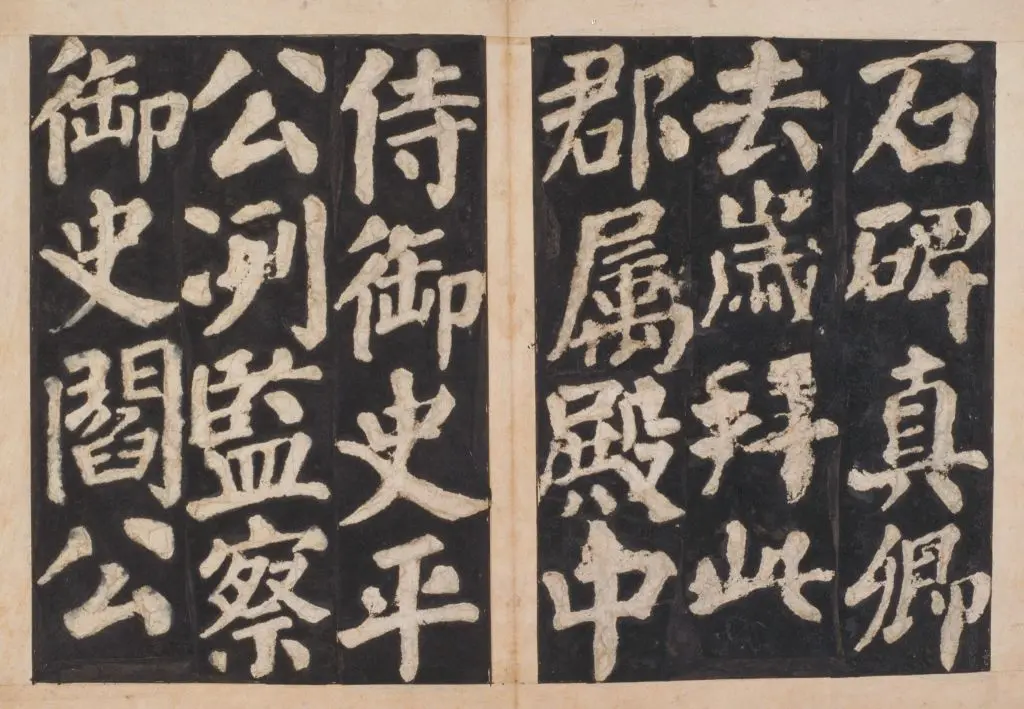 石碑真卿
去歲拜此
郡属殿中
侍御史平
公洌監察
御史閻公